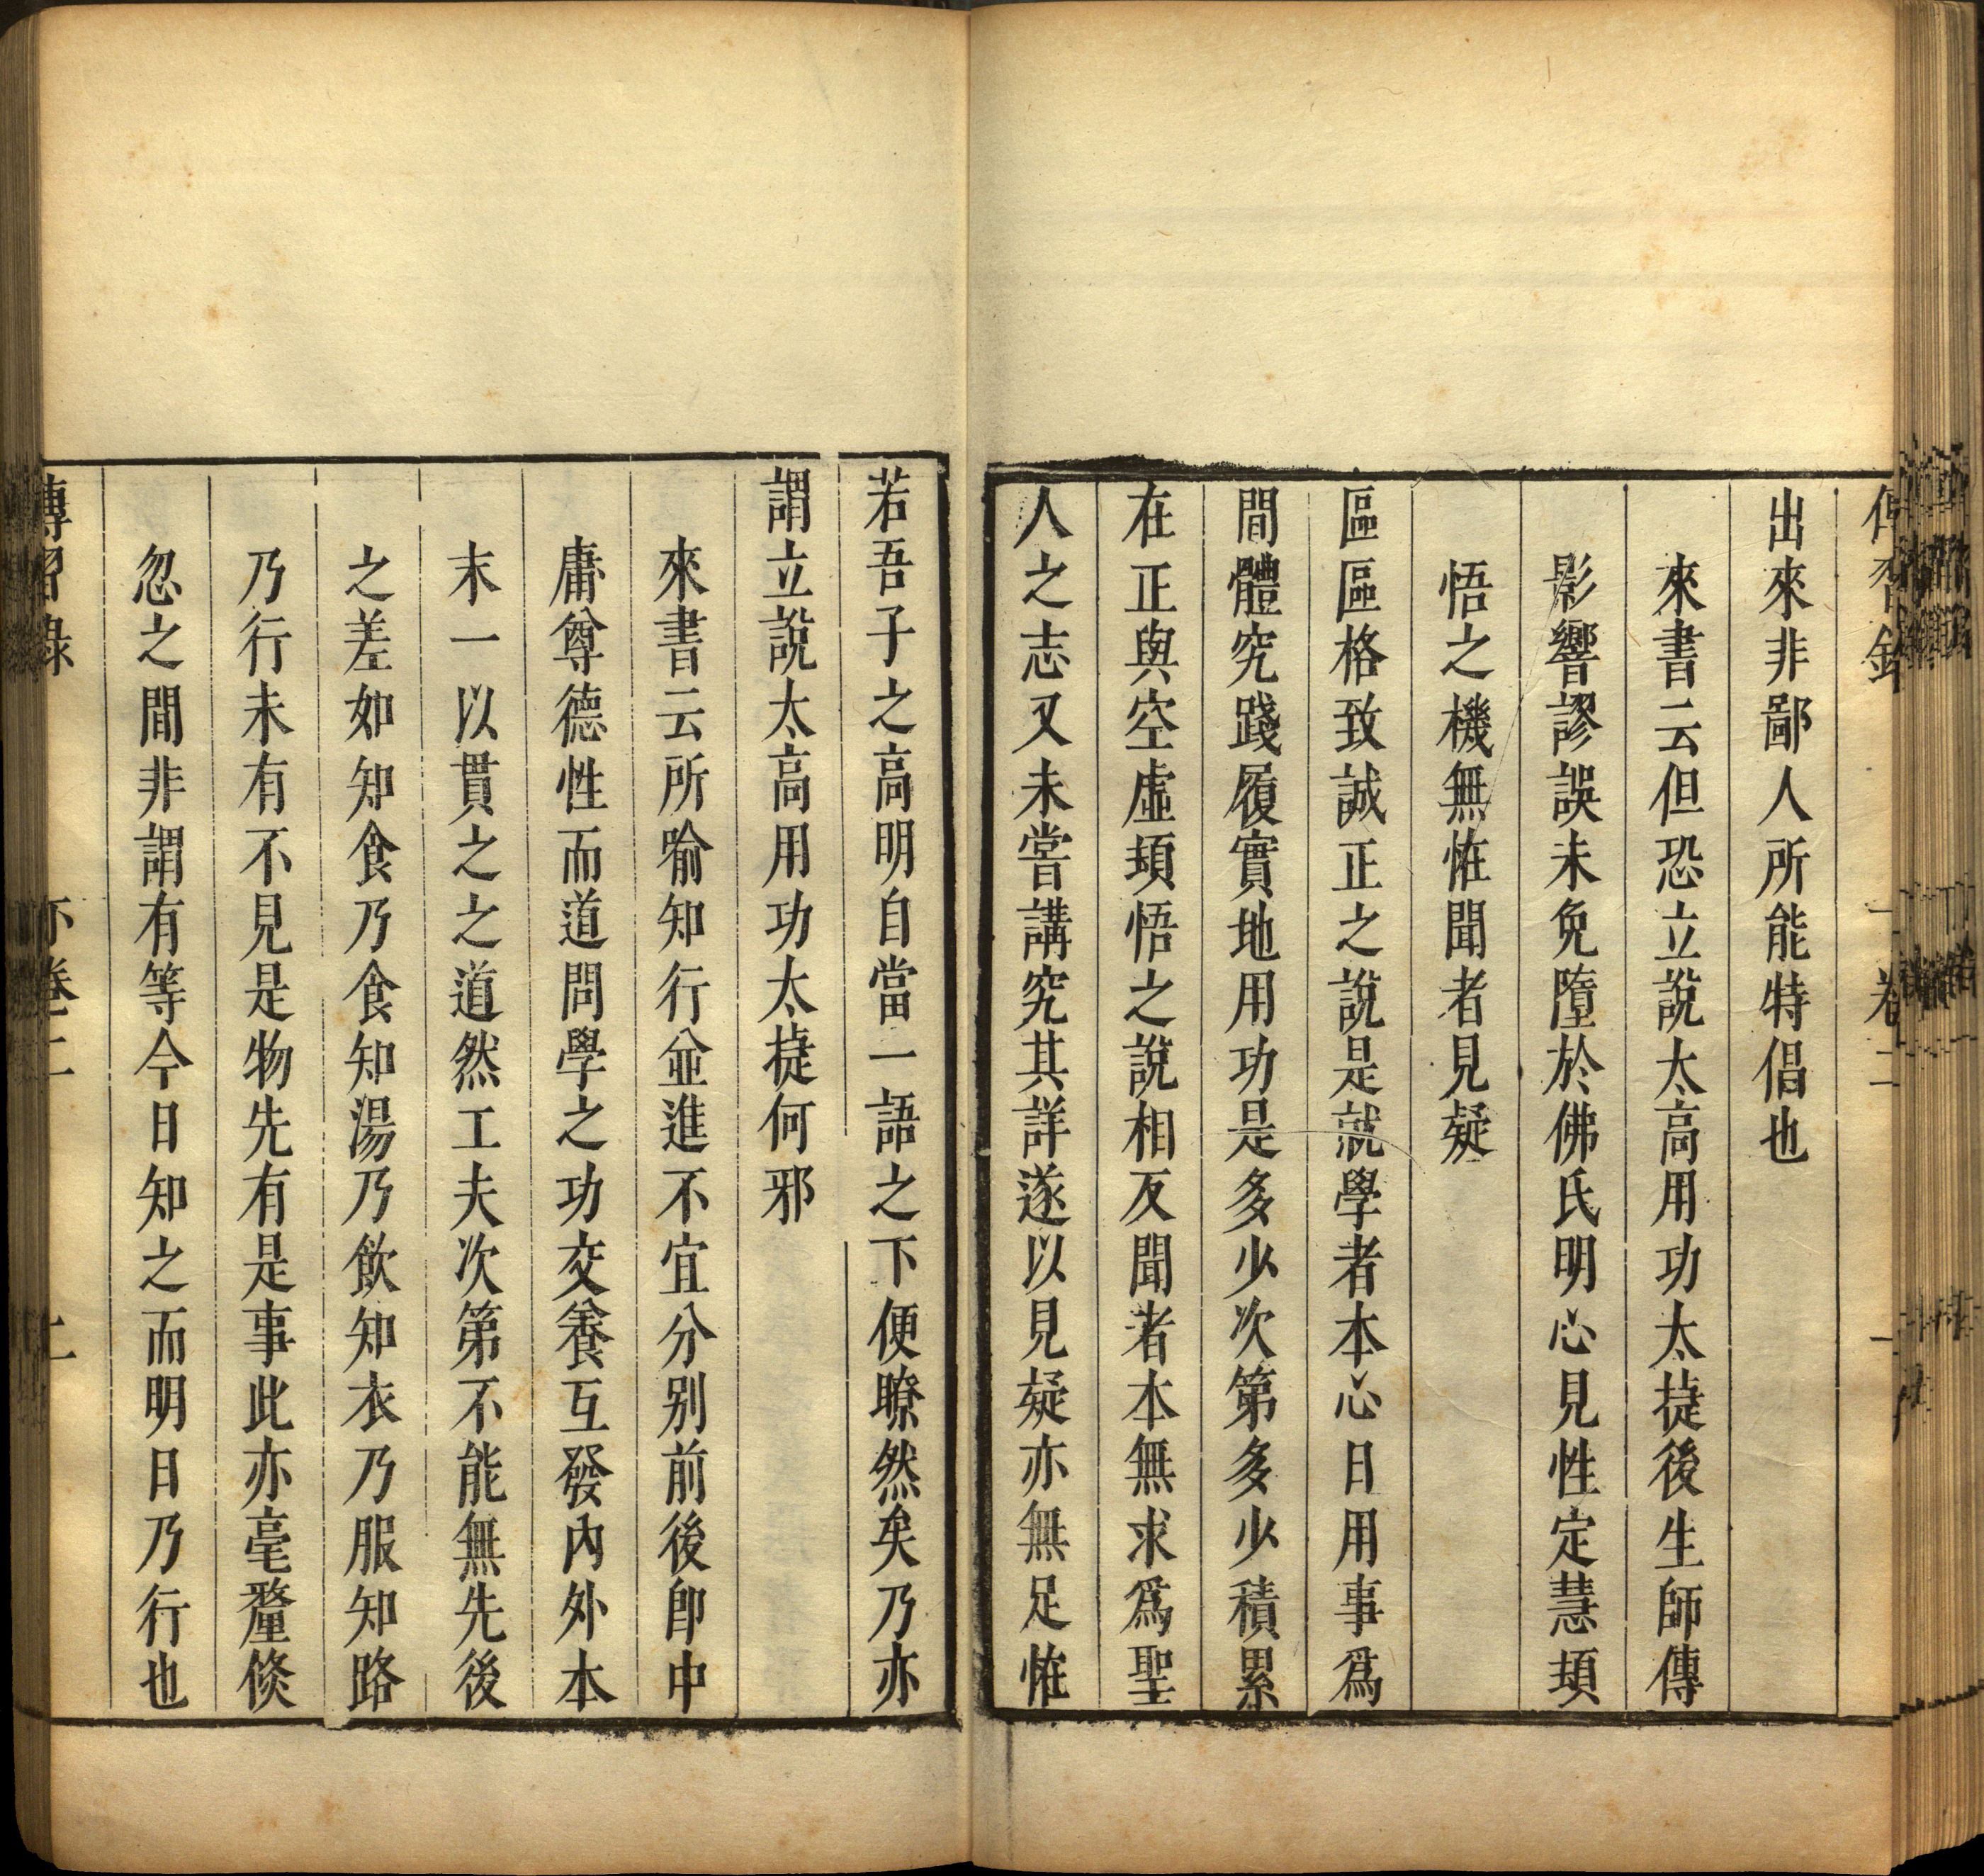 傳習錄 卷二 一
出來非鄙人所能特倡也
來書云但恐立說太高用功太㨗後生師傳
影響謬誤未免墮於佛氏明心見性定慧頓
悟之機無恠聞者見疑
區區格致誠正之說是就學者本心日用事爲
間體究踐履實地用功是多少次第多少積累
在正與空虛頓悟之說相反聞者本無求爲聖
人之志又未嘗講究其詳遂以見疑亦無足恠
若吾子之高明自當一語之下便瞭然矣乃亦
謂立說太高用功太㨗何邪
來書云所喻知行並進不宜分別前後卽中
庸尊德性而道問學之功交養互發內外本
末一以貫之之道然工夫次第不能無先後
之差如知食乃食知湯乃飲知衣乃服知路
乃行未有不見是物先有是事此亦毫釐倐
忽之間非謂有等今日知之而明日乃行也
傳習錄 卷二 二